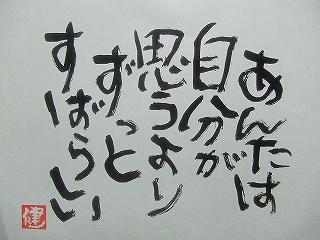 あんたは
自分が
思うより
ずっと
すばらしい
健